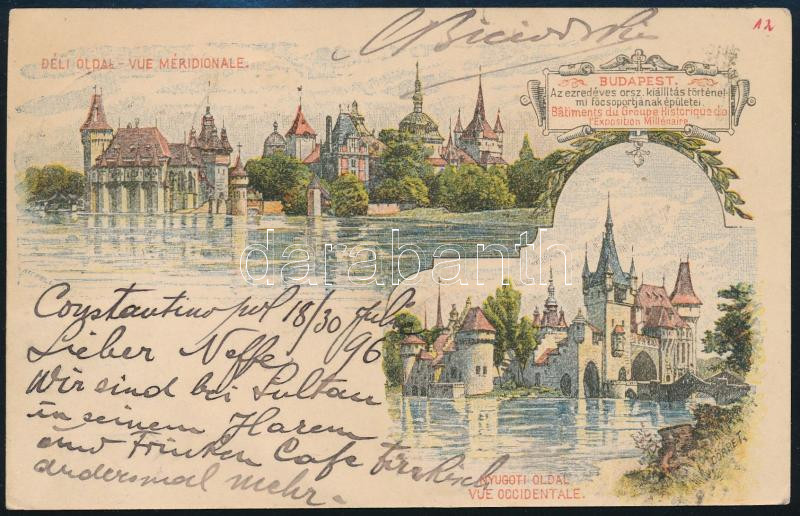 12
DÉLI OLDAL - VUE MÉRIDIONALE.
BUDAPEST.
Az ezredéves orsz. kiállítás történel-
mi főcsoportjának épületei.
Bâtiments du Groupe Historique de
l'Exposition Millénaire.
darabanth
Constantinopol 18/30 Juli
96
Lieber Neffe
Wir sind bei Sultan
in seinem Harem
und trinken Cafe türkisch
andersmal mehr.
NYUGOTI OLDAL
VUE OCCIDENTALE.